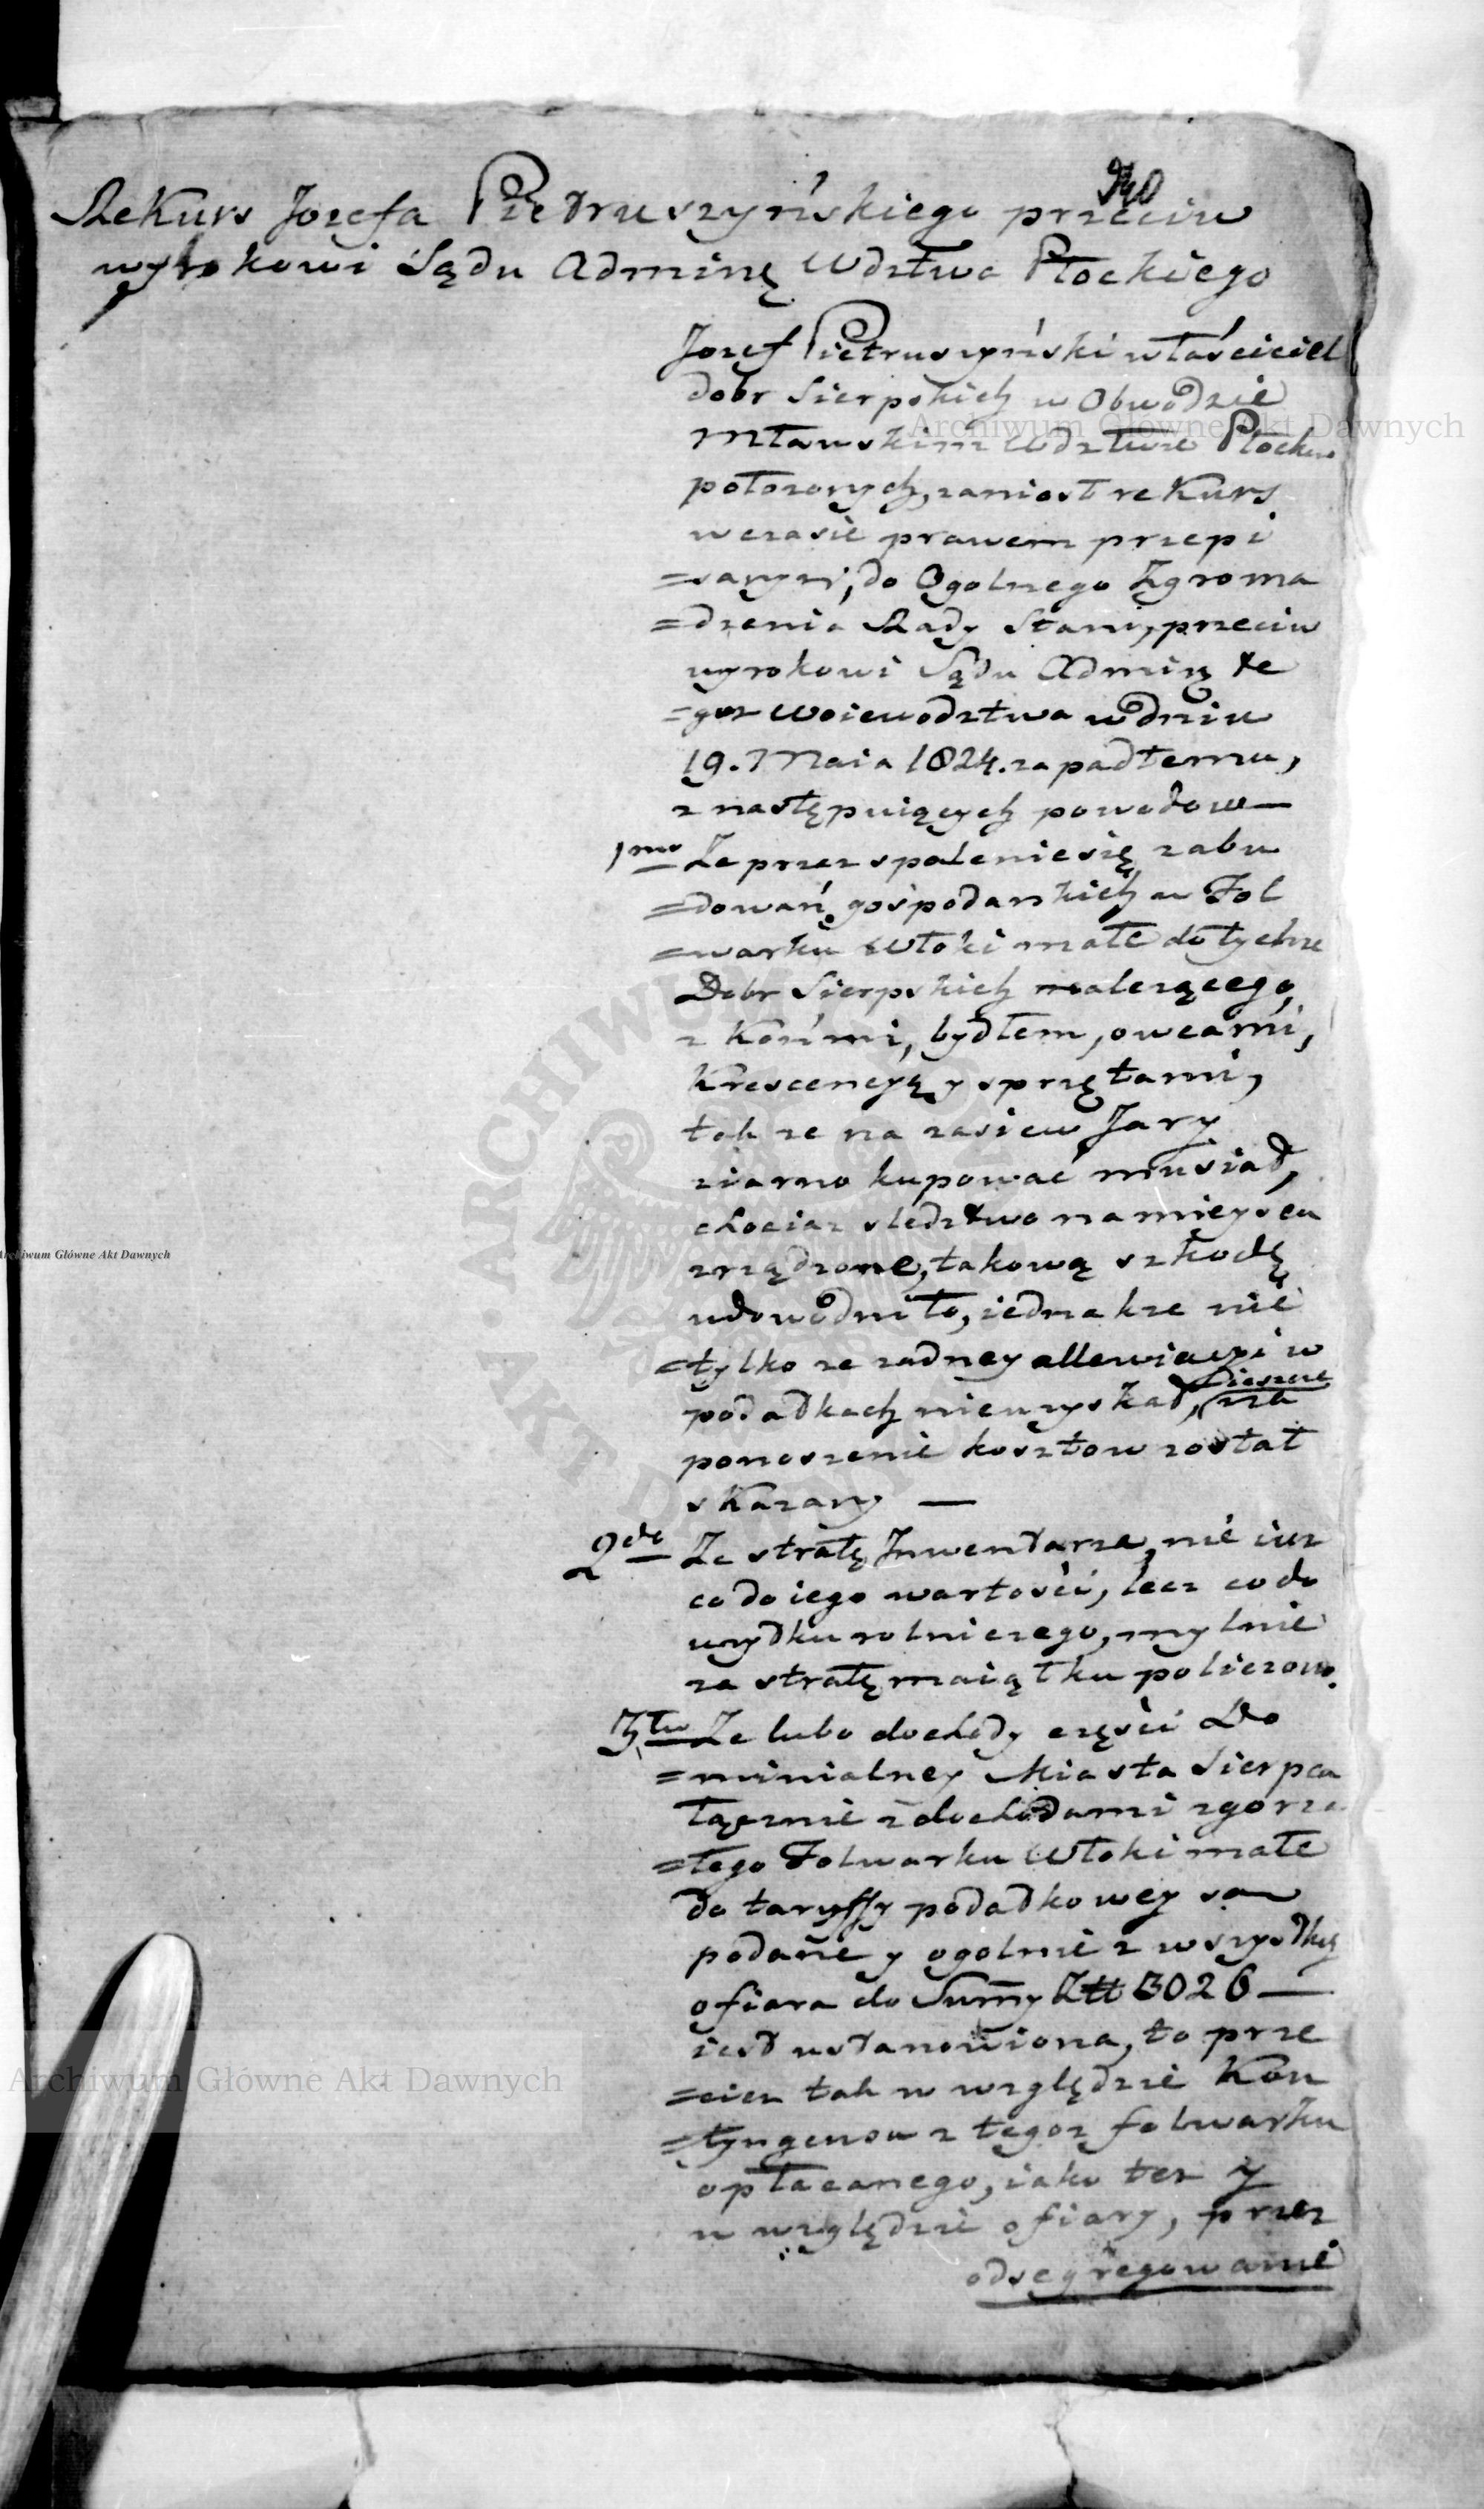 Rekurs Jozefa Pietruszyńskiego przeciw
wyrokowi Sądu Adminę Wdztwa Płockiego
Jozef Pietruszyński właściciel
dobr Sierpskich w Obwodzie
Mławskim Wdztwie Płockm
położonych, zaniosł rekurs
w czasie prawem przepi
=sanym, do Ogolnego Zgroma
=dzenia Rady Stanu, przeciw
wyrokowi Sądu Adminę te
=goz Woiewodztwa w dniu
19. Maia 1824. zapadłemu,
z następuiących powodow —
1mo Ze przez spalenie się zabu
=dowań gospodarskich w Fol
=warku Włoki małe do tychze
Dobr Sierpskich nalezącego,
z Końmi, bydłem, owcami,
Krescencyą y sprzętami,
tak ze na zasiew Jary
ziarno kupować musiał,
chociaz sledztwo na mieyscu
zrządzone, takową szkodę
udowodniło, iednakze nie
=tylko ze zadney allewiacyi w
podatkach nieuzyskał, ieszcze
na
ponoszenie kosztow został
skazany —
2do Ze stratę Inwentarza, nie iuz
co do iego wartości, lecz co do
uzydku rolniczego, mylnie
za stratę maiątku policzono.
3tio Ze lubo dochody części Do
=minialney Miasta Sierpca
łącznie z dochodami zgorza
=łego Folwarku Włoki małe
do taryffy podatkowey są
podane y ogolnie z wszystkich
ofiara do Summy Złł 3026 —
iest ustanowiona, to prze
=ciez tak w względzie Kon
=tyngensu z tegoz folwarku
opłacanego, iako tez y
w względzie ofiary, przez
odsegregowanie
Archiwum Główne Akt Dawnych
Archiwum Główne Akt Dawnych
Archiwum Główne Akt Dawnych